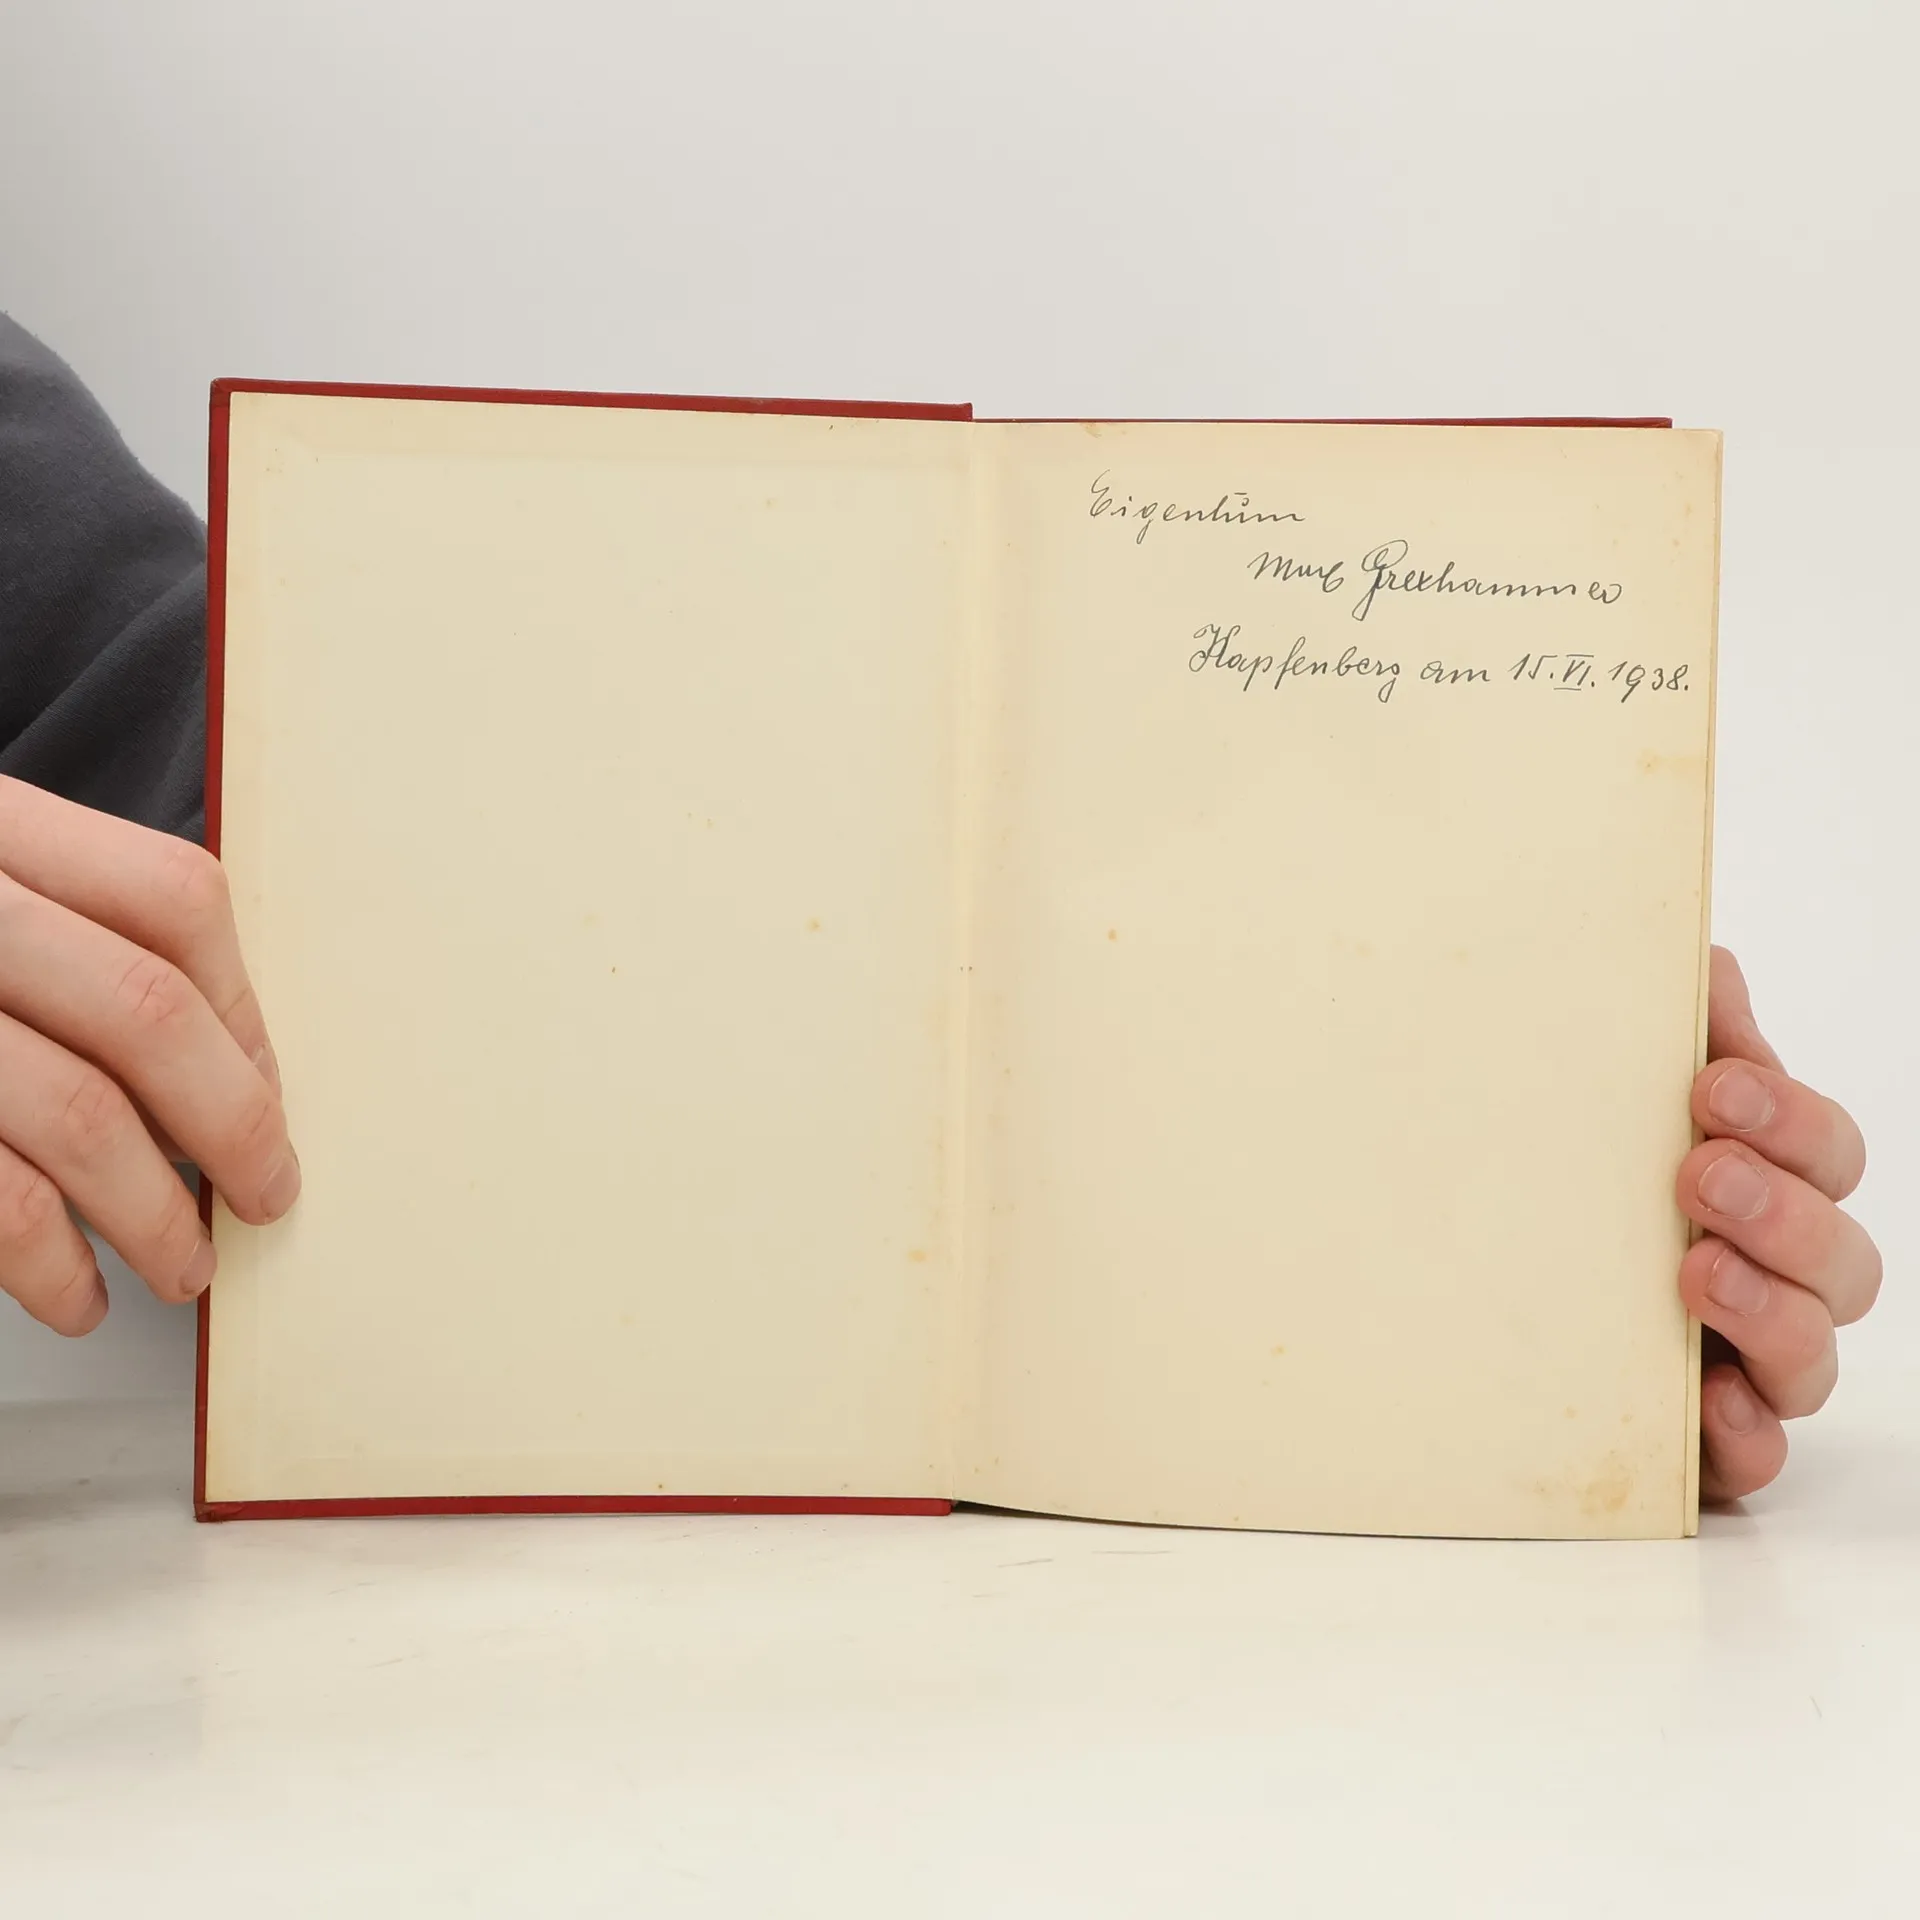 Eigentum
Max Grexhammer
Kapfenberg am 15.VI.1938.